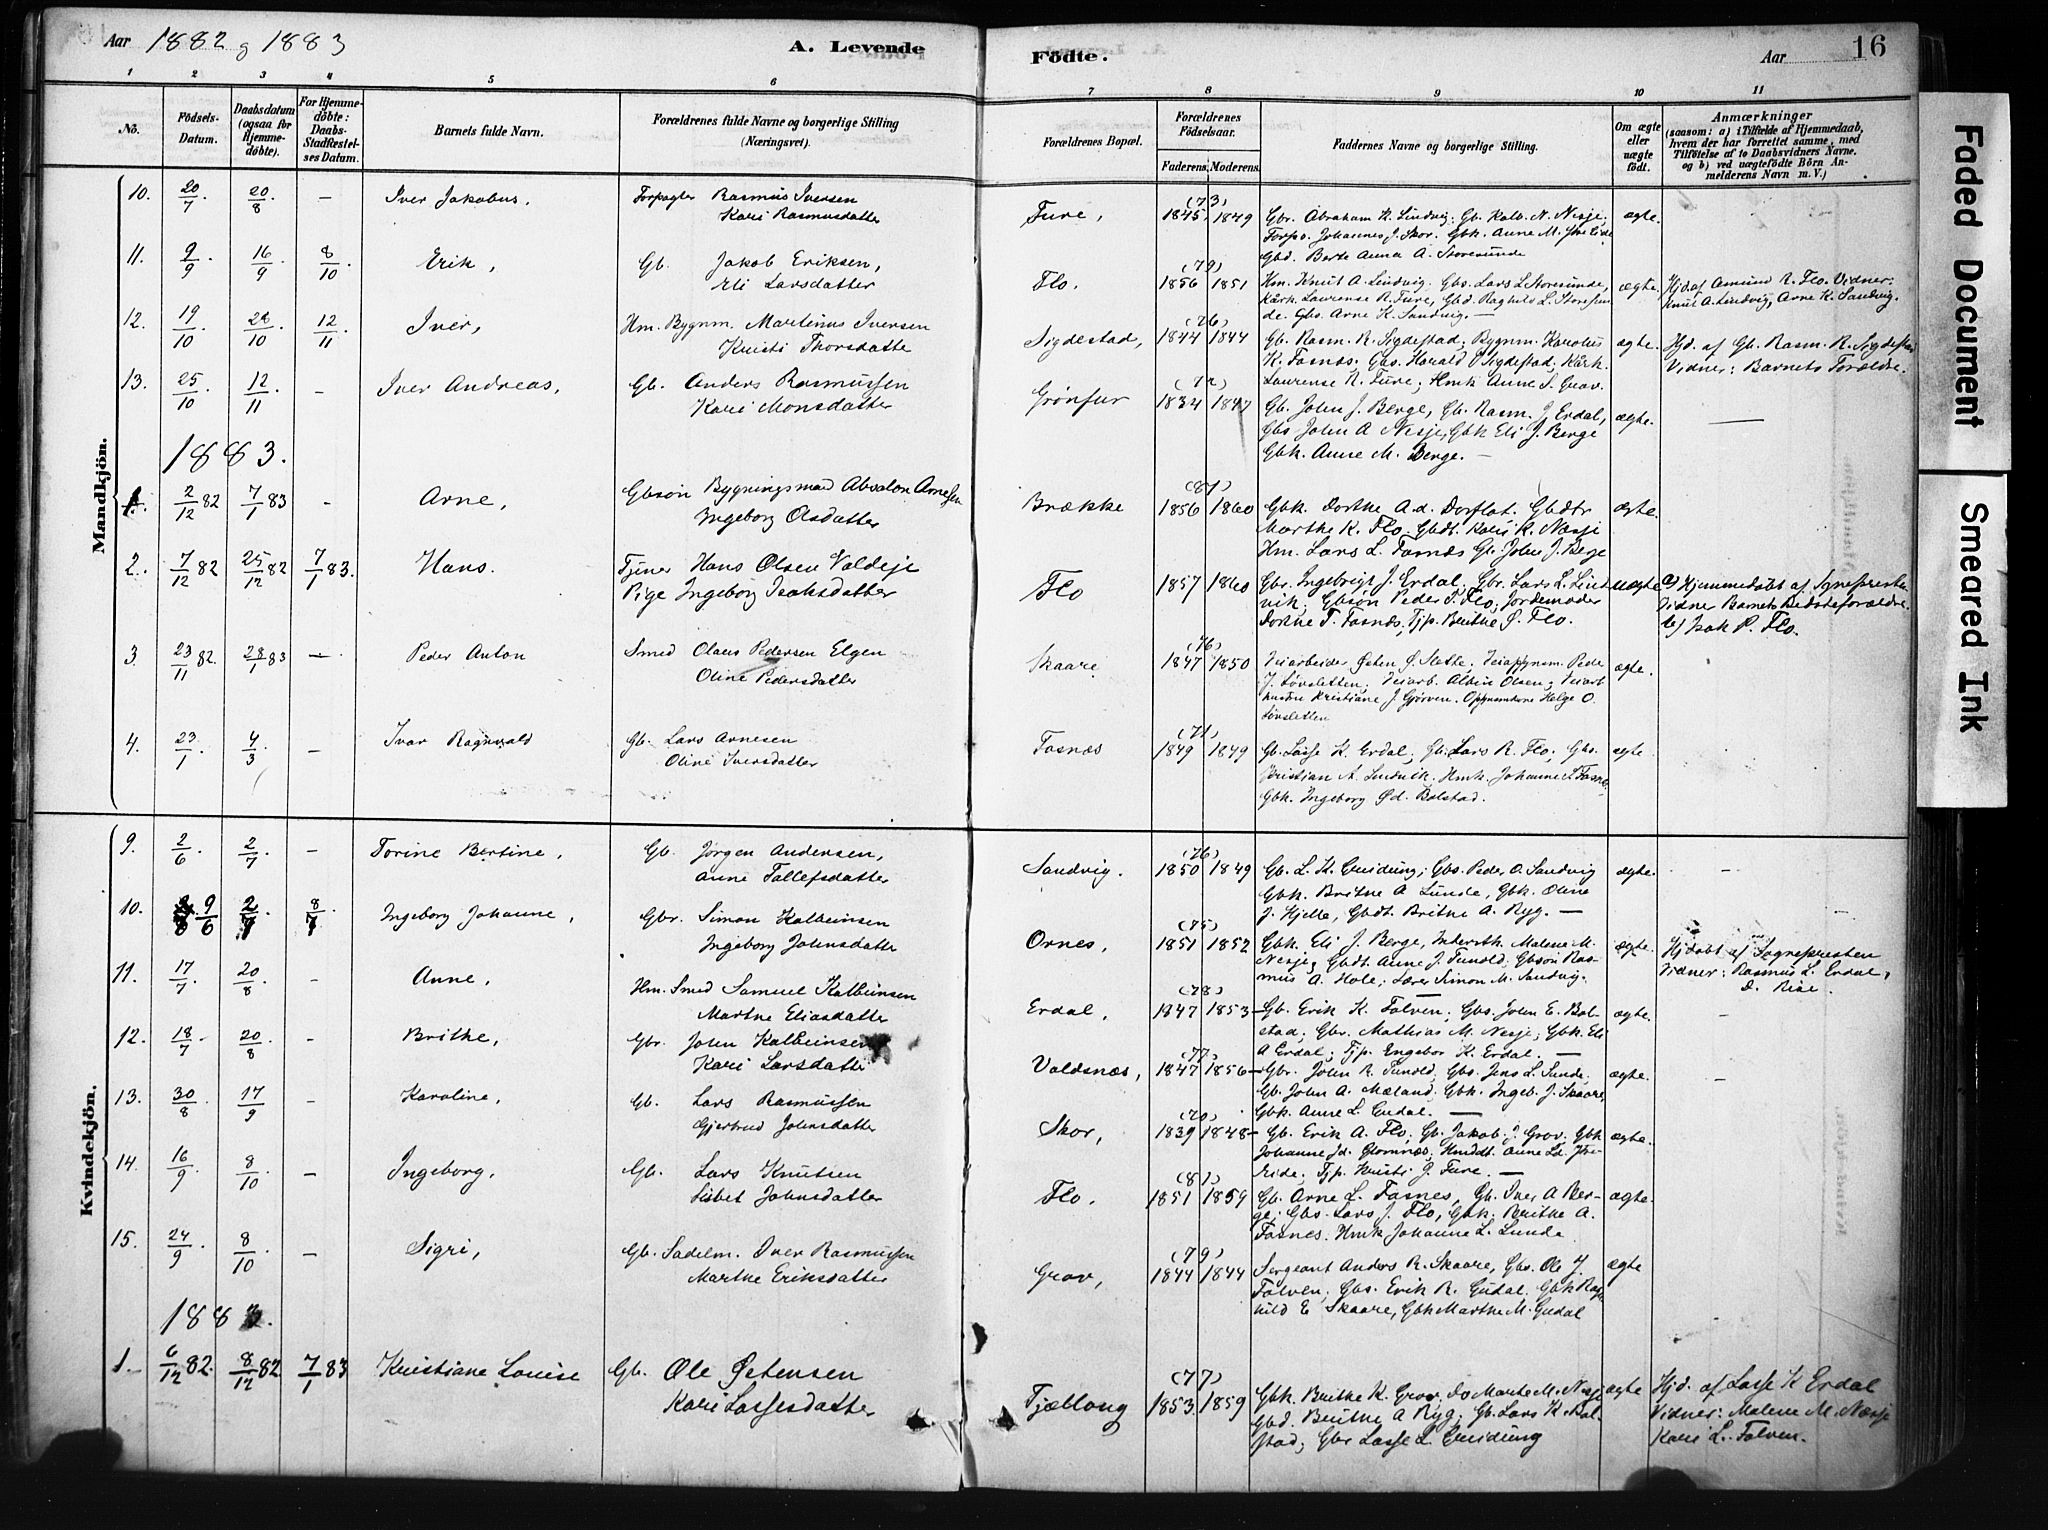 Aar 1882 g 1883
A. Levende
Födte.
Aar
16
1 2 3 4 5 6 7 8 9 10 11
No.
Födsels-
Datum.
Daabsdatum
(ogsaa for
Hjemme-
döbte).
For Hjemme-
döbte:
Daabs-
Stadfæstel-
ses Datum.
Barnets fulde Navn.
Forældrenes fulde Navne og borgerlige Stilling
(Næringsvei).
Forældrenes Bopæl.
Forældrenes
Födselsaar.
Faderens. Moderens.
Faddernes Navne og borgerlige Stilling.
Om ægte
eller
uægte
födt.
Anmærkninger
(saasom: a) i Tilfælde af Hjemmedaab,
hvem der har forrettet samme, med
Tilföielse af to Daabsvidners Navne.
og b) ved uægtefödte Börn An-
melderens Navn m. V.)
Mandkjön.
10. 20/7 20/8 – Iver Jakobus, Forpagter Rasmus Iversen
Kari Rasmusdatter
Fure, (73) 1845 1849
Gbr. Abraham K. Lindvig; Gb. Kolb. N. Nesje;
Forps. Johannes J. Skor. Gbk. Anne M.
Gbd. Berte Anna A. Storesunde
ægte.
11. 9/9 16/9 8/10 Erik, Gb. Jakob Eriksen,
Eli Larsdatter
Flo. (79) 1856 1851
Hm. Knut A. Lindvig. Gbs. Lars L. Storesunde,
Kårk. Laurense R. Fure, Gbd. Raghild L. Storesun
de. Gbs. Arne K. Sandvig. –
ægte.
Hjd. af Amund R. Flo. Vidner:
Knut A. Lindvig, Arne K. Sandvig.
12. 19/10 28/10 12/11 Iver, Hm. Bygnm. Martinus Iversen
Kristi Thorsdatter
Sigdestad, (76) 1844 1844
Gb. Rasm. R. Sigdestad; Bygnm. Karolus
K. Fosnæs; Gbs. Harald P. Sigdestad, Kårk.
Laurense R. Fure; Hmk Anne S. Grav.
ægte.
Hjd. af Gb. Rasm. R. Sigdestad
Vidner: Barnets Forældre.
13. 25/10 12/11 – Iver Andreas, Gb. Anders Rasmussen
Kari Monsdatter
Grønfur (72) 1834 1847
Gb. John J. Berge, Gb. Rasm. J. Erdal,
Gbs John A Nesje, Gbk Eli J. Berge
Gbk. Anne M. Berge. –
ægte.
1883.
1. 2/12 82 7/1 83 – Arne, Gbsøn Bygningsmand Absalon Arnesen
Ingeborg Olsdatter
Brække (81) 1856 1860
Gbk. Dorthe A.d. Dorflot. Gbdtr
Marthe K. Flo. Gbdt. Kari K. Nesje
Hm. Lars L. Fosnæs Gb. John J. Berge
ægte.
2. 7/12 82 25/12 82 7/1 83. Hans. Tjener Hans Olsen Valdeje
Pige Ingeborg Isaksdatter
Flo 1857 1860
Gbr. Ingebrigt J. Erdal; Gbr. Lars L. Lind
vik; Gbsøn Peder T. Flo; Jordemoder
Dorthe T. Fosnæs, Tjp. Brithe Ø. Flo.
uægte
a) Hjemmedøbt af Sognepresten
Vidner Barnets Bedsteforældre.
b) Isak P. Flo.
3. 23/11 82. 28/1 83 – Peder Anton Smed Olaus Pedersen Elgen
Oline Pedersdatter
Skaare (76) 1847 1850
Veiarbeider Østen Ø. Slette. Veiopsynsm. Peder
J. Løvsletten; Veiarb. Albin Olsen; Veiarb
hustru Kristiane J Gjørven. Opsynsmkone Helge O.
Løvsletten
ægte.
4. 23/1 4/3 – Ivar Ragnvald Gb. Lars Arnesen
Oline Iversdatter
Fosnæs (71) 1849 1849
Gb. Lasse K. Erdal; Gb. Lars R. Flo; Gbs.
Kristian A. Lindvik. Hmk. Johanne L. Fosnæs
Gbk. Ingeborg Ød. Bolstad.
ægte.
Kvindekjön.
9. 2/6 2/7 – Torine Bertine, Gb. Jørgen Andersen,
Anne Tollefsdatter
Sandvig. (76) 1850 1849
Gb. L. K. Guidung; Gbs. Peder O. Sandvig
Gbk. Brithe A Lunde, Gbk. Oline
J. Hjelle, Gbdt. Brithe A. Ryg. –
ægte. –
10. 9/6 2/7 8/7 Ingeborg Johanne, Gbr. Simon Kolbeinsen
Ingeborg Johnsdatter
Ornes, (75) 1851 1852
Gbk. Eli J. Berge, Inderstk. Malene M.
Nesje; Gbdt. Anne J. Tunold; Gbsøn Ras-
mus A. Hole; Lærer Simon M. Sandvig.
ægte.
Hjdøbt af Sognepresten
Vidner: Rasmus L. Erdal,
D. Riise.
11. 17/7 20/8 – Anne, Hm. Smed Samuel Kolbeinsen
Marthe Eliasdatter
Erdal, (78) 1847 1853
Gb. Erik K. Folven; Gbs. John E. Bol-
stad; Gbr. Mathias M. Nesje; Gbk. Eli
A Erdal; Tjp. Engebor K. Erdal. –
ægte. –
12. 18/7 20/8 – Brithe, Gbr. John Kolbeinsen
Kari Larsdatter
Valdsnæs, (77) 1847 1856
Gbr. John R. Tunold; Gbs. Jens L. Sunde;
Gb. John A. Mæland; Gbk. Ingeb. J. Skaare,
Gbk. Anne L. Gudal. –
ægte. –
13. 30/8 17/9 – Karoline, Gb. Lars Rasmussen
Gjertrud Johnsdatter
Skor, (70) 1839 1848
Gb. Erik A. Flo; Gb. Jakob J. Grov; Gbk
Johanne Jd. Glomnæs; Hmddt. Anne Ld.
eide; Tjp. Kristi J. Fure. –
ægte.
14. 16/9 8/10 – Ingeborg, Gb. Lars Knutsen
Lisbet Johnsdatter
Flo. (81) 1851 1859
Gb. Arne L. Fosnes, Gb. Iver A Ber-
ge; Gbs. Lars J. Flo, Gbk. Brithe A.
Fosnes. Hmk Johanne L. Lunde
ægte.
15. 24/9 8/10 – Sigri, Gb. Sadelm. Iver Rasmussen
Marthe Eriksdatter
Grov, (79) 1844 1844
Sergeant Anders R. Skaare, Gbs. Ole J.
Folven; Gbs. Erik R. Gudal. Gbk Rag
nild E. Skaare, Gbk Marthe M. Gudal
ægte
1883.
1. 6/12 82. 8/12 82 7/1 83 Kristiane Louise Gb. Ole Østensen
Kari Lassesdatter
Tjellaug (77) 1853 1859
Gbk. Brithe K. Grov, Do Marte M. Nesje
Gbd. Brithe A Ryg; Gb. Lars K. Bol-
stad; Gbr Lasse L. Guidung
ægte
Hjd. af Lasse K Erdal
Vidner: Malene M. Nesje
Kari L. Folven.
Faded Document
Smeared Ink